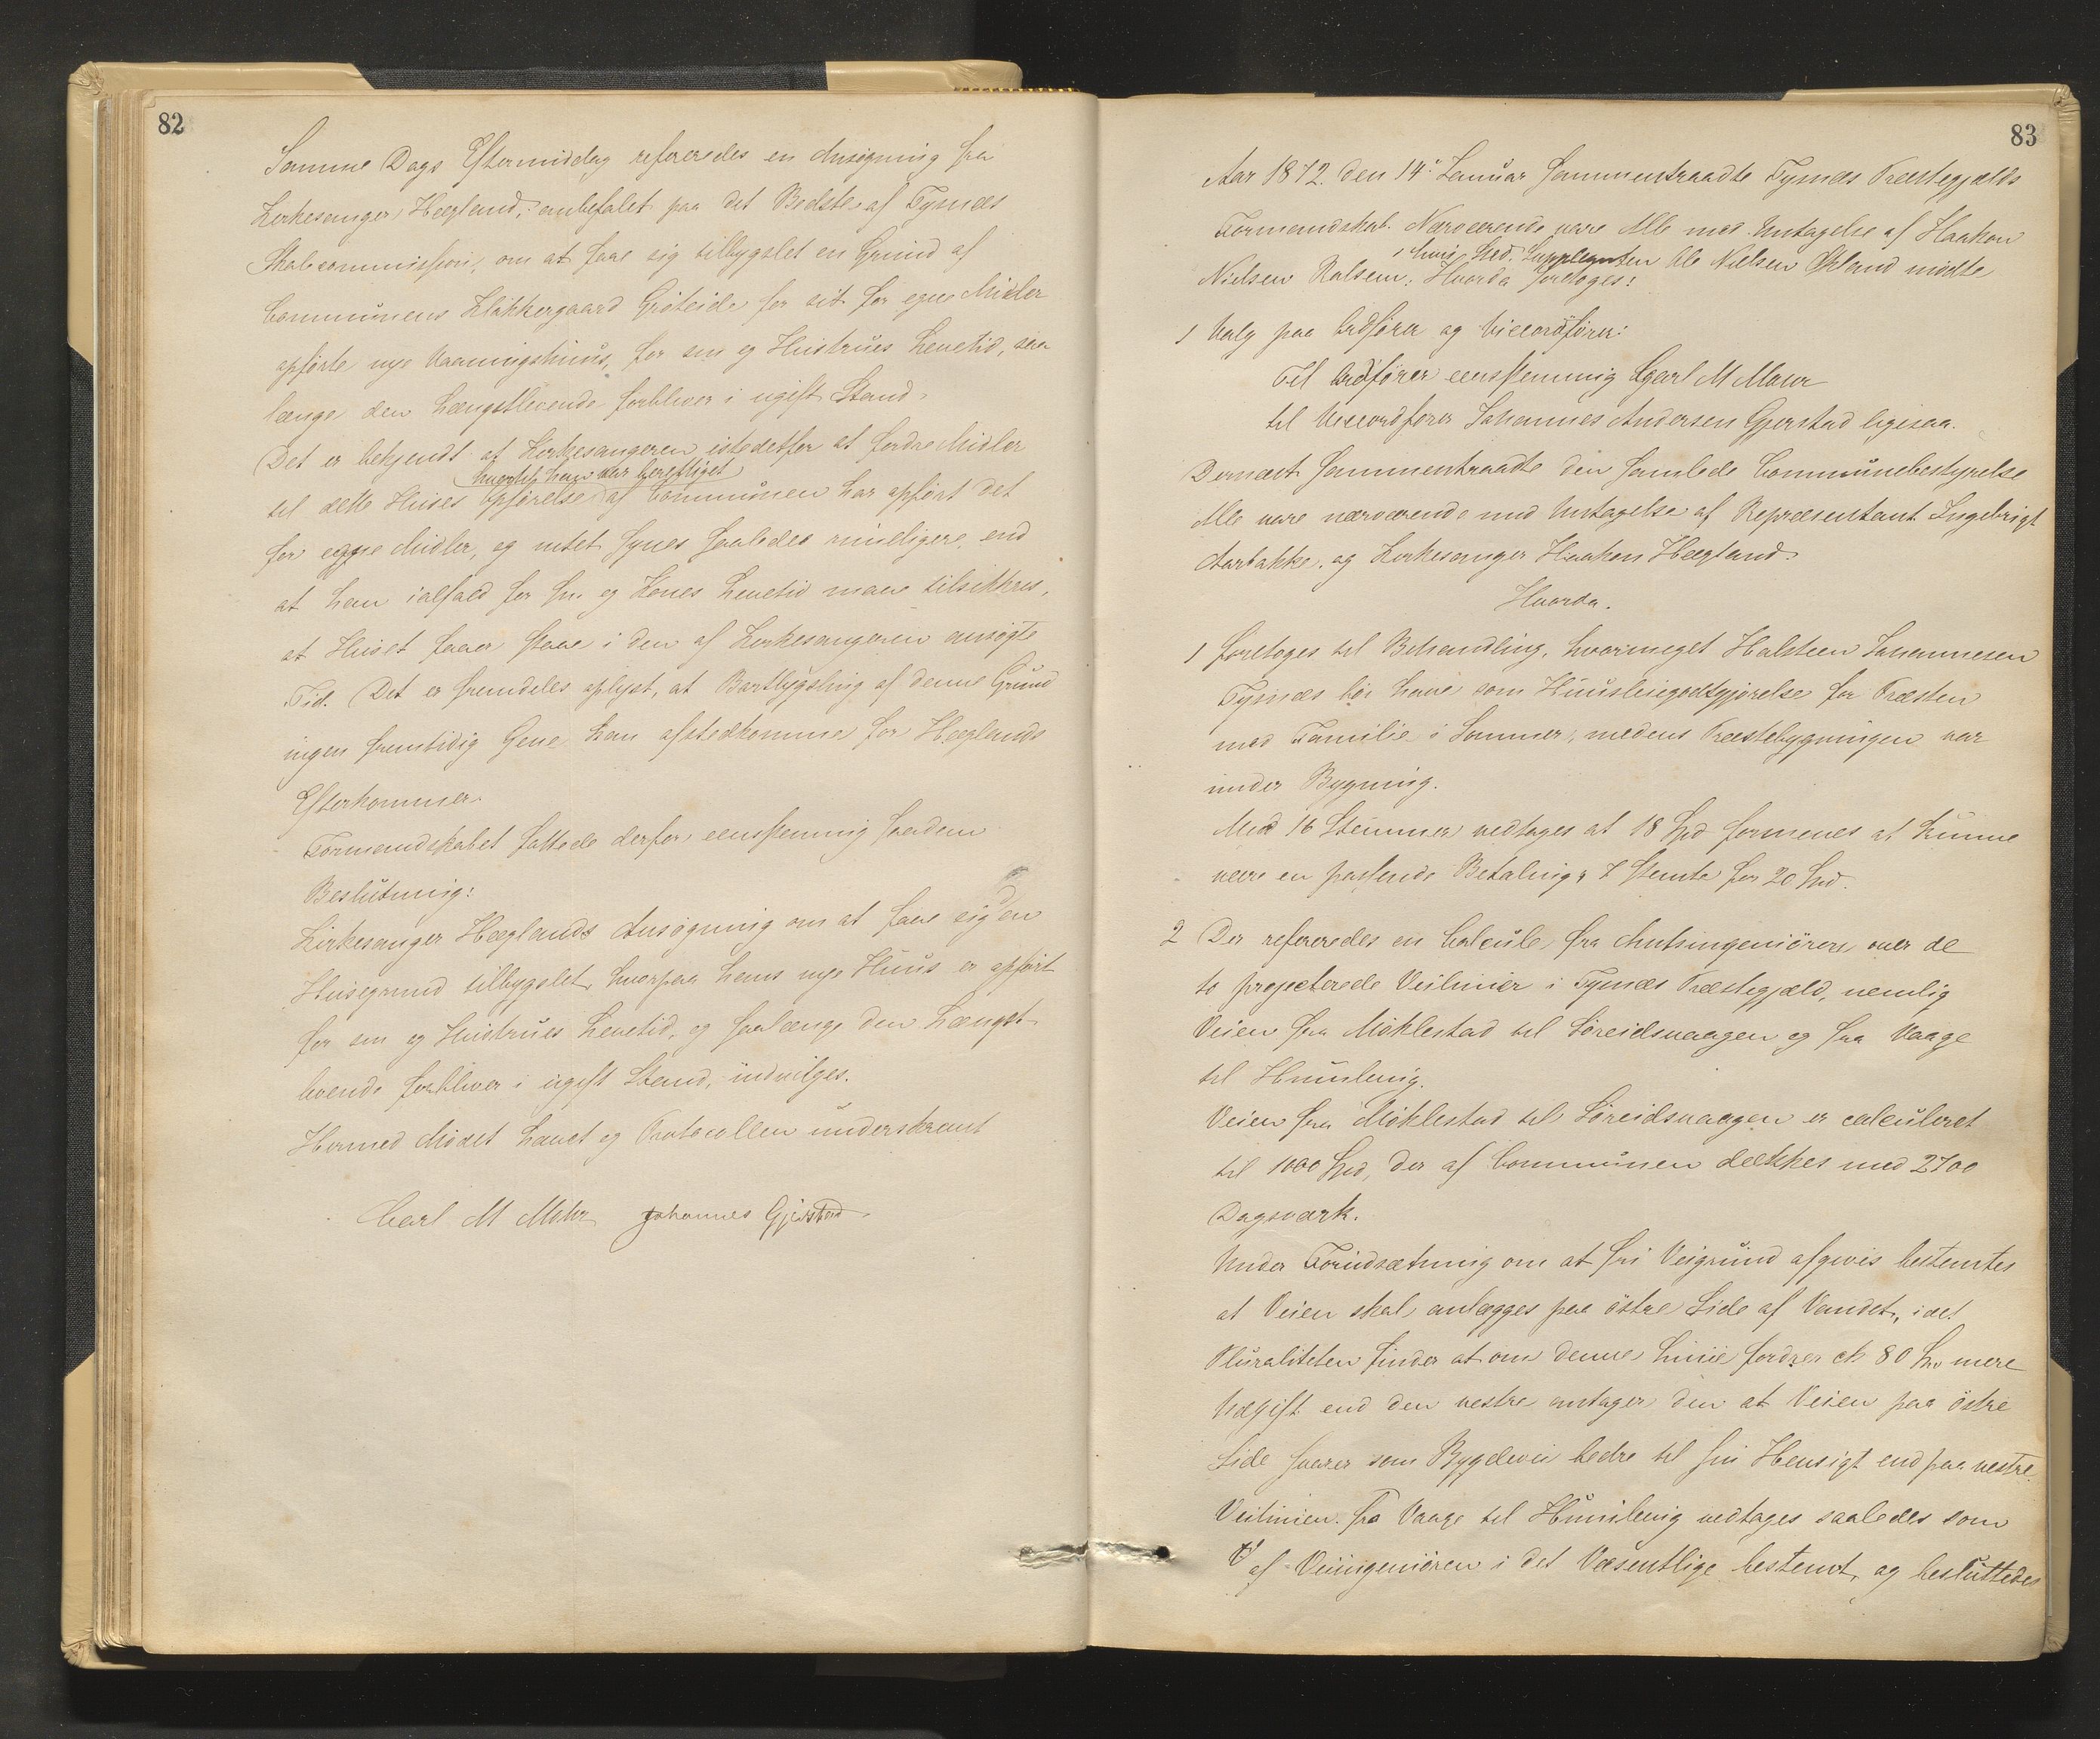 82
Samme Dags Eftermiddag refereredes en Ansøgning fra
Kirkesanger Heggland, anbefalet paa det Bedste af Tysnæs
Skolecommission, om at faae sig tilbygslet en Grund af
Communens Klokkergaard Grøteide for sit for egne Midler
opførte nye Vaaningshuus, for sin og Hustrues Levetid, saa
længe den Længstlevende forbliver i ugift Stand.
Det er bekjendt at Kirkesangeren istedetfor at fordre Midler
hvortil han var berettiget
til dette Huses Opførelse af Communen har opført det
for egne Midler, og intet synes saaledes rimeligere, end
at han ialfald for sin og Kones Levetid maae tilsikkres,
at Huset faaer staae i den af Kirkesangeren ansøgte
Tid. Det er fremdeles oplyst, at Bortbygsling af denne Grund
ingen fremtidig Gene kan afstedkomme for Hegglands
Efterkommer.
Formandskabet fattede derfor eensstemmig saadan
Beslutning:
Kirkesanger Hegglands Ansøgning om at faae sig den
Huusegrund tilbygslet, hvorpaa hans nye Huus er opført
for sin og Hustrues Levetid, og saalænge den Længst-
levende forbliver i ugift Stand, indvilges.
Hermed Mødet hævet og Protocollen underskrevet
Carl M Mohr Johannes Gjerstad
83
Aar 1872. den 14' Januar sammentraadte Tysnæs Præstegjælds
Formandskab. Nærværende vare Alle med Untagelse af Haakon
i hvis Sted Supplenten Ole Nielsen Økland mødte
Nielsen Kalsem; Hvorda foretoges:
1 Valg paa Ordfører og Viceordfører:
Til Ordfører eensstemmig Carl M Mohr
til Viceordfører Johannes Andersen Gjerstad ligesaa.
Dernæst sammentraadte den samlede Communebestyrelse
Alle vare nærværende med Untagelse af Repræsentant Ingebrigt
Aarbakke, og Kirkesanger Haaken Heggland.
Hvorda.
1 foretoges til Behandling, hvormeget Halsteen Johannesen
Tysnæs bør have som Huusleiegodtgjørelse for Præsten
med Familie i Sommer, medens Præstebygningen var
under Bygning.
Med 16 Stemmer vedtoges at 18 Spd formenes at kunne
være en passende Betaling, 7 stemte for 20 Spd.
2 Der refereredes en Calcule fra Amtsingeniøren over de
to projecterede Veilinier i Tysnæs Præstegjæld, nemlig
Veien fra Møklestad til Søreidsvaagen og fra Vaage
til
Veien fra Møklestad til Søreidsvaagen er calculeret
til 1000 Spd, der af Communen dækkes med 2700
Dagsværk.
Under Forudsætning om at fri Veigrund afgives bestemtes
at Veien skal anlægges paa østre Side af Vandet, idet
Pluraliteten finder at om denne Linie fordrer ck 80 Spd mere
Udgift end den vestre antager den at Veien paa østre
Side svarer som Bygdevei bedre til sin Hensigt end paa vestre.
Veilinien fra Vaage til vedtages saaledes som
af Veiingeniøren i det Væsentlige bestemt, og besluttedes